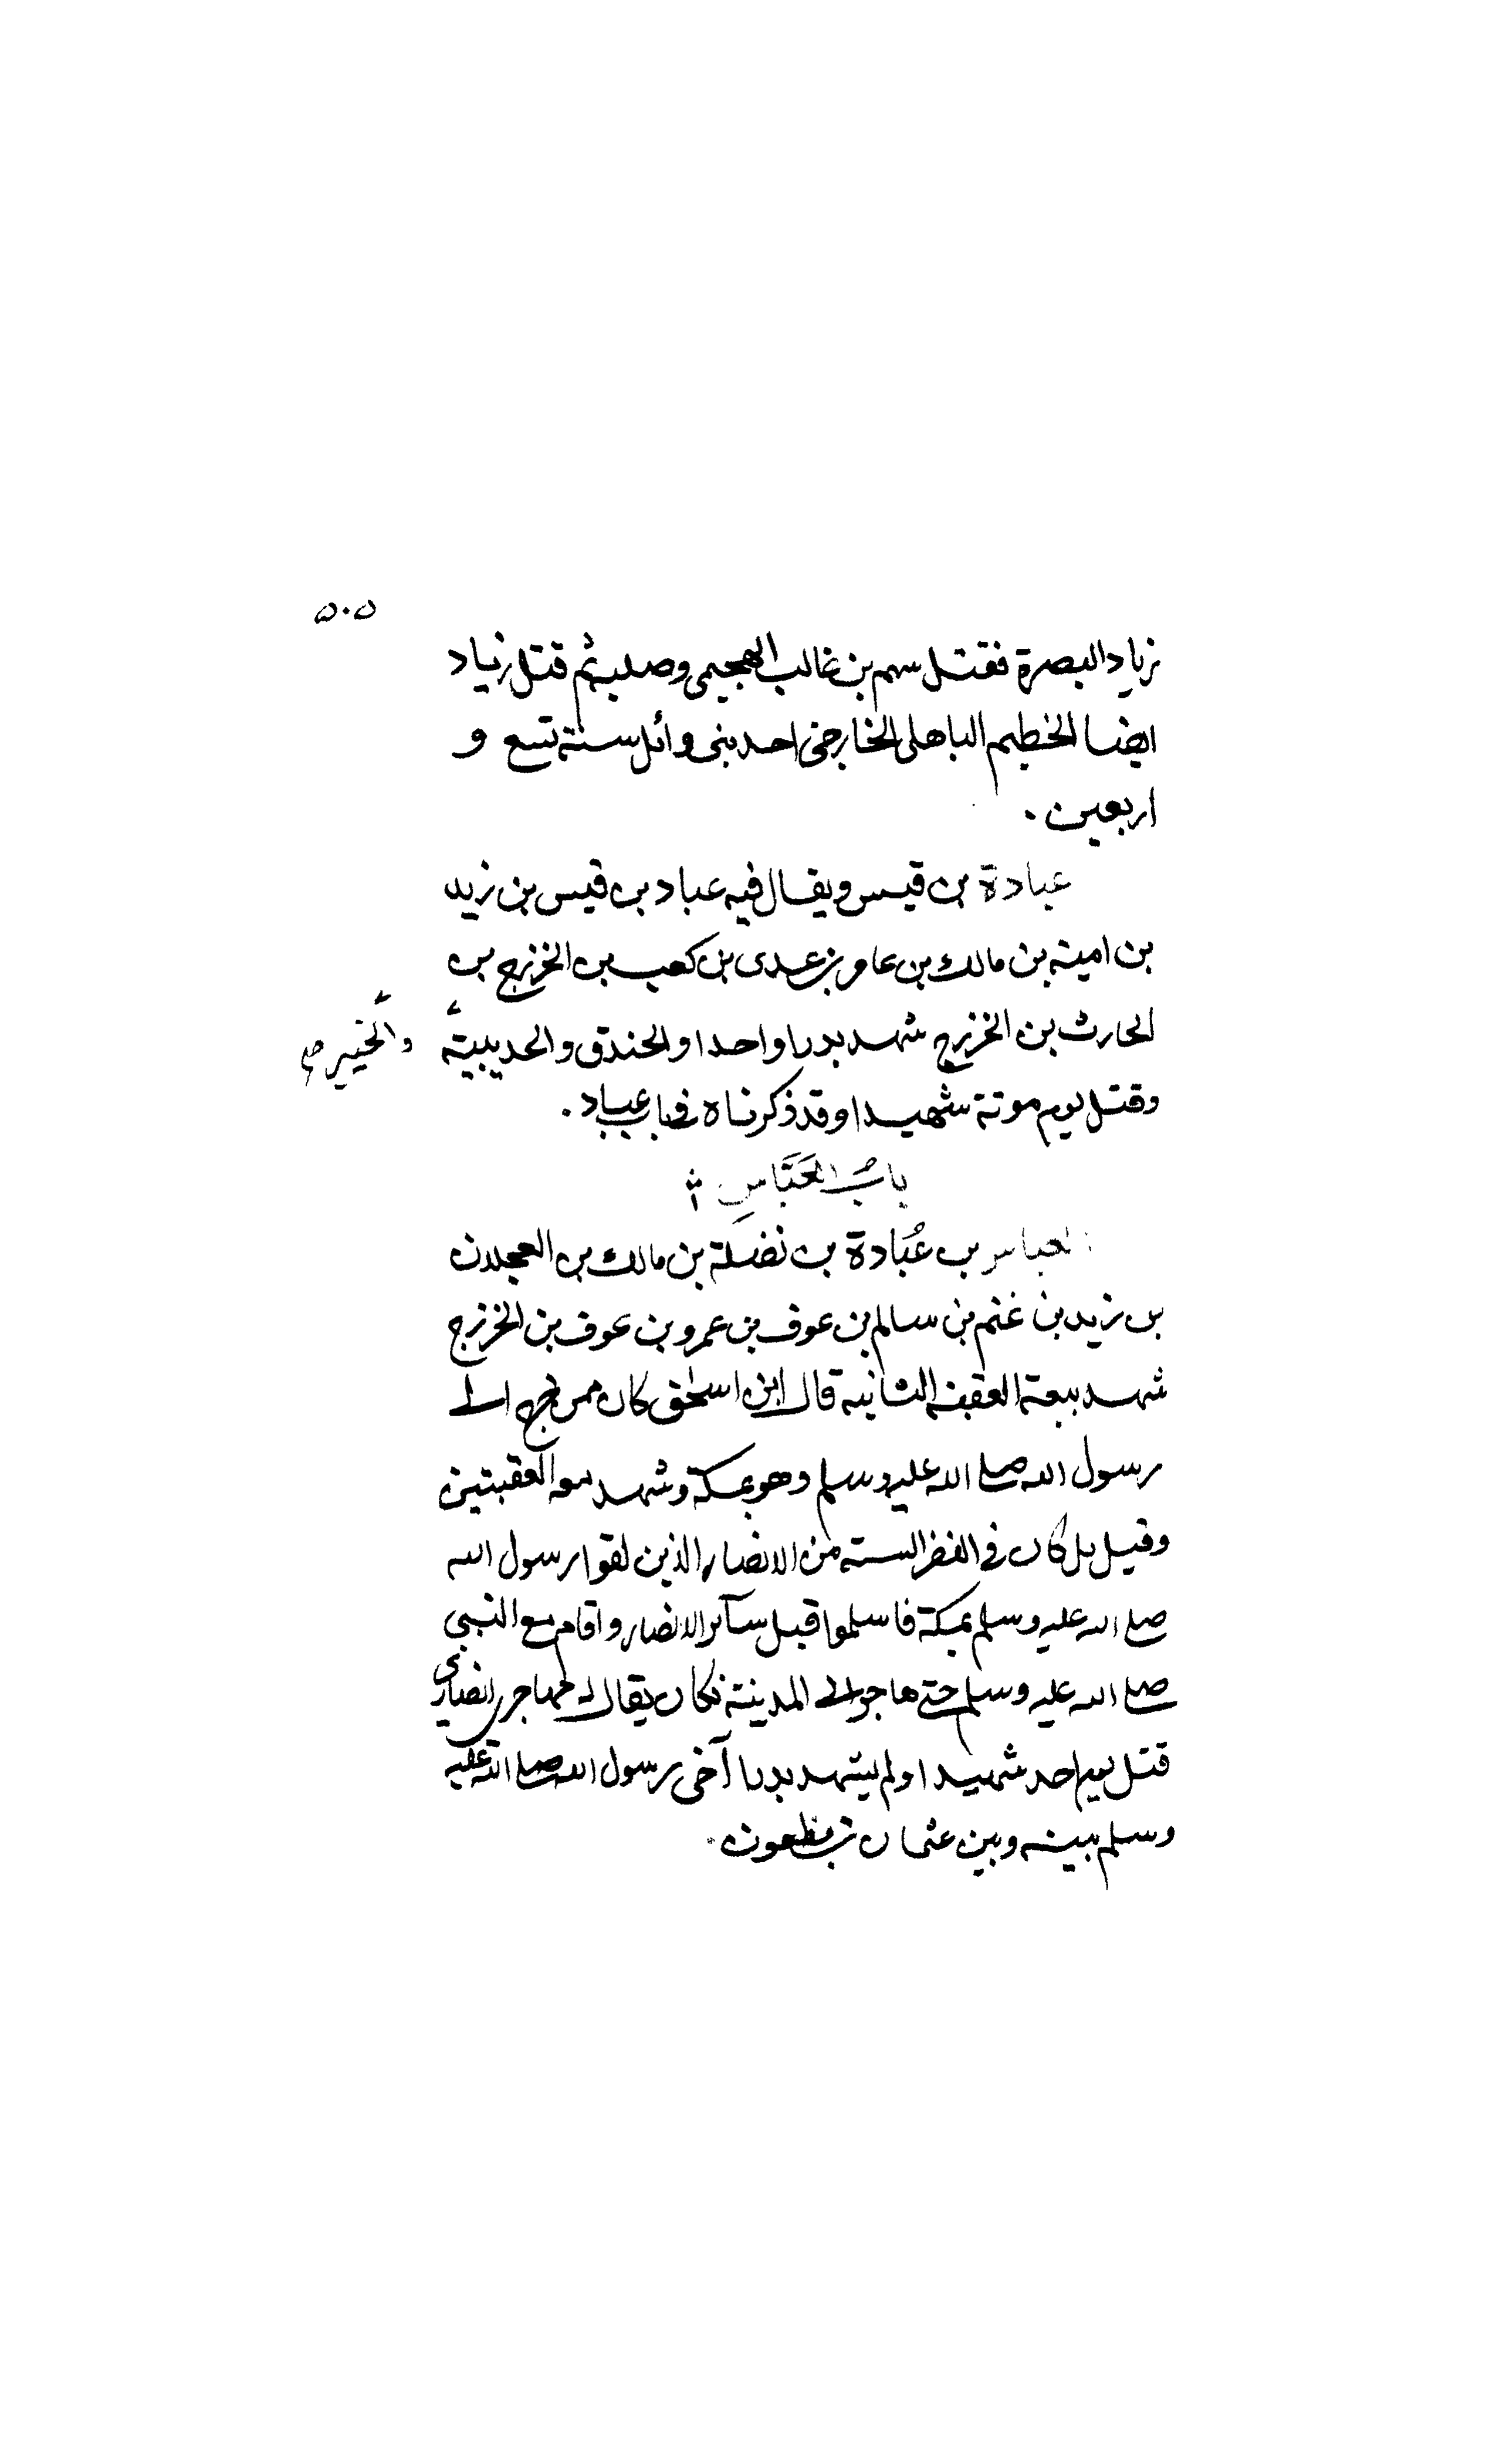 ٥٠٥
زياد البصرة فقتل سهم بن غالب الهجيمى وصلبه ثم قتل زياد
ايضا الخطيم الباهلى الخارجى احد بنى وائل سنة تسع و
اربعين .
عبادة بن قيس ويقال فيه عباد بن قيس بن زيد
بن امية بن مالك بن عامر بن عدى بن كعب بن الخزرج بن
الحارث بن الخزرج شهد بدرا واحدا والخندق والحديبية والخيبر صح
وقتل يوم موتة شهيدا وقد ذكرناه فى باب عباد .
بابُ العَبَّاسِ
العباس بن عُبَادة بن نضلة بن مالك بن العجلان
بن زيد بن غنم بن سالم بن عوف بن عمرو بن عوف بن الخزرج
شهد بيعة العقبة الثانية قال ابن اسحق كان ممن خرج الى
رسول الله صلى الله عليه وسلم وهو بمكة وشهد معه العقبتين
وقيل بل كان فى النفر الستة من الانصار الذين لقوا رسول الله
صلى الله عليه وسلم بمكة فاسلموا قبل سآئر الانصار واقام مع النبى
صلى الله عليه وسلم حتى هاجر الى المدينة فكان يقال له مهاجرى انصارى
قتل يوم احد شهيدا ولم يشهد بدرا آخى رسول الله صلى الله عليه
وسلم بينه وبين عثمان بن مظعون .